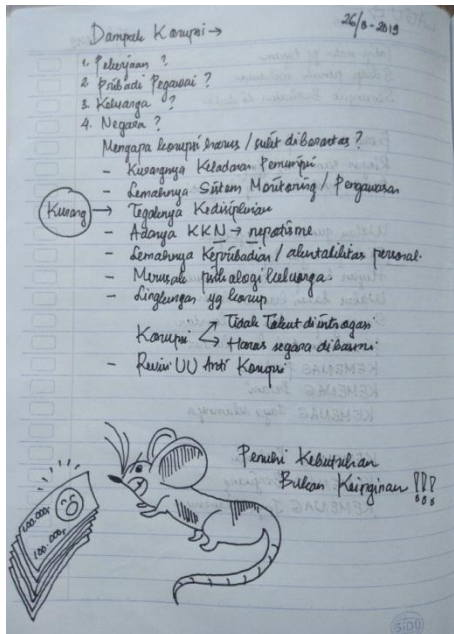 26/8-2019
Dampak Korupsi →
1. Pekerjaan ?
2. Pribadi Pegawai ?
3. Keluarga ?
4. Negara ?
Mengapa korupsi harus / sulit diberantas ?
- Kurangnya Kesadaran Pemimpin
- Lemahnya Sistem Monitoring / Pengawasan
Kurang → Tegaknya Kedisiplinan
- Adanya KKN → nepotisme
- Lemahnya Kepribadian / akuntabilitas personal.
- Merusak psikologi keluarga.
- Lingkungan yg korup
Korupsi → Tidak Takut diintrogasi
→ Harus segara dibasmi.
- Revisi UU Anti Korupsi
Penuhi Kebutuhan
Bukan Keinginan !!!
100.000,-
100.000,-
SIDU